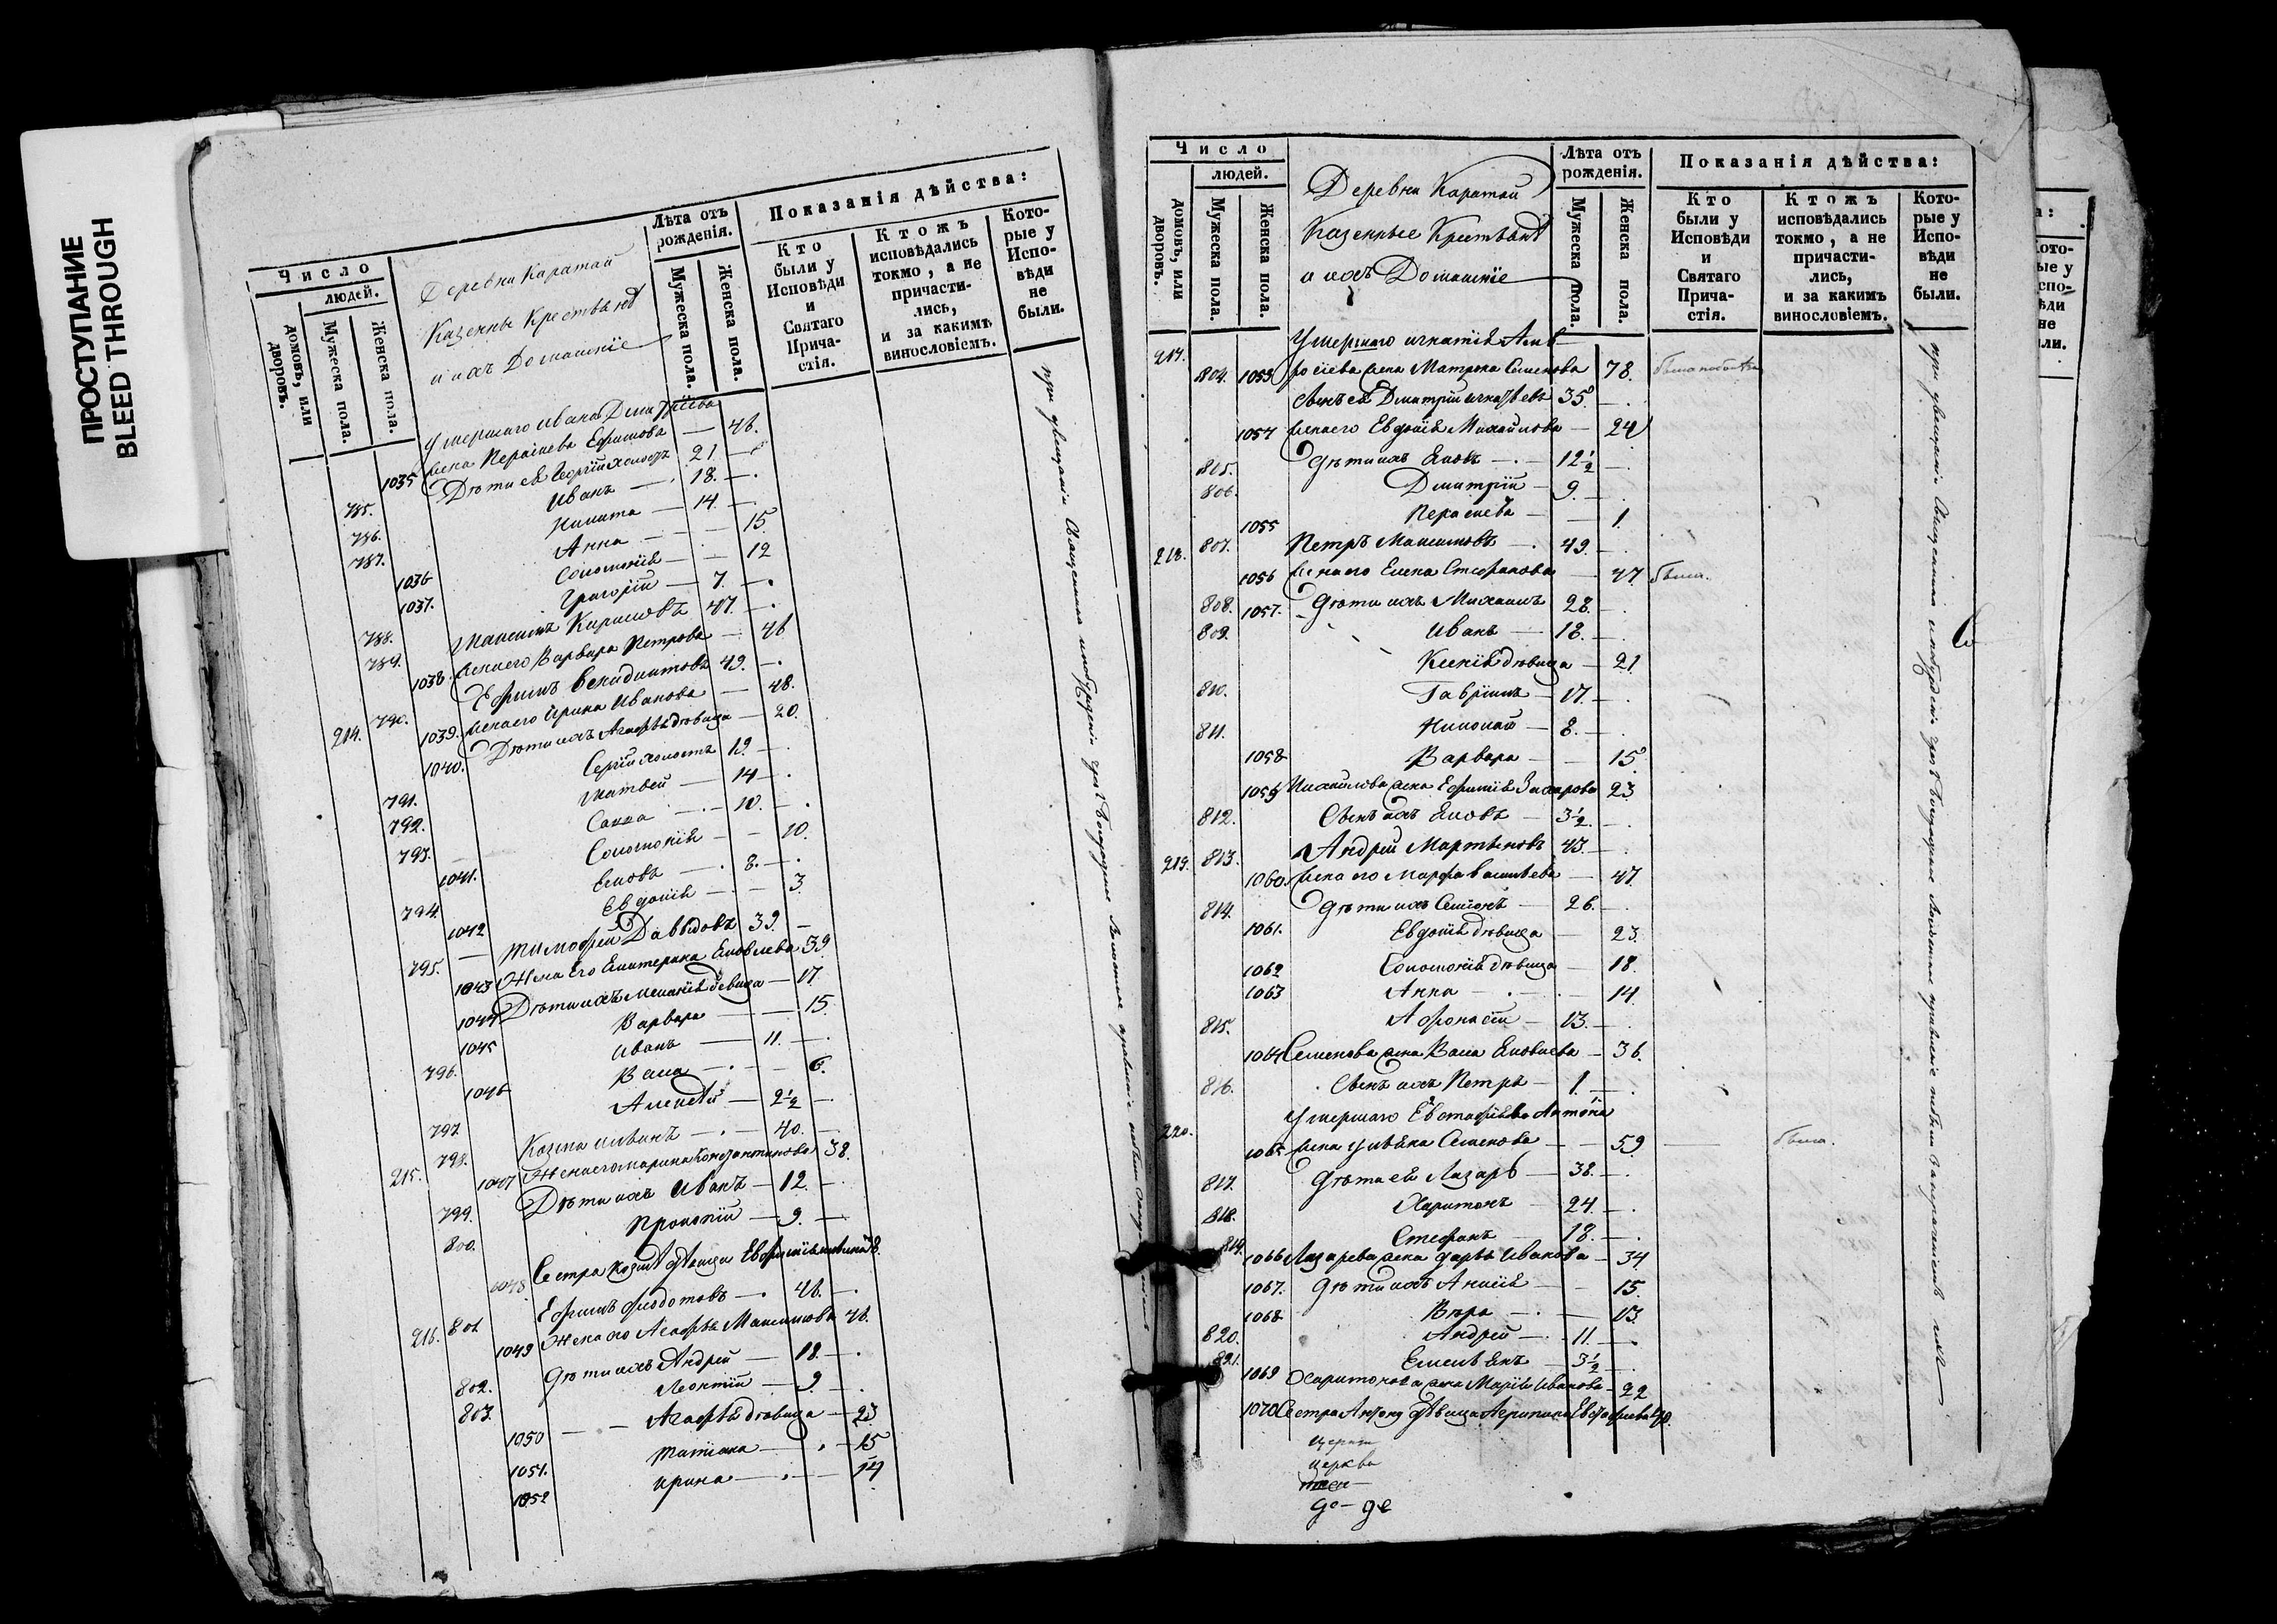 ПРОСТУПАНИЕ
BLEED THROUGH
Число
людей.
домовъ, или дворовъ.
Мужеска пола.
Женска пола.
Деревни Каратай
Казенные Крестьянѣ
и ихъ Домашніе
Лѣта отъ рожденія.
Мужеска пола.
Женска пола.
Показанія дѣйства:
Кто были у Исповѣди и Святаго Прича-стія.
Ктожъ исповѣдались токмо, а не причасти-лись, и за какимъ винословіемъ.
Кото-рые у Испо-вѣди не были.
умершаго Ивана Дмитріева
1035 жена Ефимова — 46.
785. Дѣти ея Георгій холостъ 21 —
786. Иванъ — 18. —
787. Никита — 14 —
1036 Анна — 15
1037. Соломонія — 12
788. Григорій — 7. —
789. Максимъ Кириловъ 47. —
1038. жена его Варвара Петрова — 46
214. 790. Ефимъ 49. —
1039. жена его Ирина Иванова — 48.
1040. Дѣти ихъ Агафья дѣвица — 20.
791. Сергій холостъ 19 —
792. Матвей — 14 —
793. Савва — 10. —
1041. Соломонія — 10.
794. Яковъ — 8. —
1042 Евдокія — 3.
795. Тимофей Давыдовъ 39. —
1043 Жена Его Екатерина Яковлева 39
1044 Дѣти ихъ Меланія дѣвица — 17.
1045 Варвара — 15.
796. Иванъ — 11. —
1046 Васса — 6.
797 Алексѣй — 2½ —
215. 798. Козма — 40. —
1047 Жена его Марина Константинова 38.
799. Дѣти ихъ Иванъ — 12. —
800. Прокопій — 9. —
1048 Сестра Козмѣ дѣвица Евфимія
216. 801 Ефимъ Федотовъ — 46. —
1049 Жена его Агафья Максимова 46.
802. Дѣти ихъ Андрей — 18. —
803. Леонтій — 9. —
1050 Агафья дѣвица — 23.
1051. Татіана — 15
1052 Ирина — 14
Число
людей.
домовъ, или дворовъ.
Мужеска пола.
Женска пола.
Деревни Каратай
Казенные Крестьянѣ
и ихъ Домашніе
Лѣта отъ рожденія.
Мужеска пола.
Женска пола.
Показанія дѣйства:
Кто были у Исповѣди и Святаго Прича-стія.
Ктожъ исповѣдались токмо, а не причасти-лись, и за какимъ винословіемъ.
Кото-рые у Испо-вѣди не были.
217. Умершаго Игнатія Амв
804. 1053 росіева жена Матрона Семенова 78.
сынъ ея Дмитрій Игнатьевъ 35 —
1054 жена его Евдокія Михайлова — 24
805. Дѣти ихъ Яковъ — 12½ —
806. Дмитрій — 9. —
1055 — 1.
218. 807. Петръ Максимовъ — 49. —
1056 жена его Елена Стефанова — 47 была.
808. 1057. Дѣти ихъ Михаилъ 28. —
809. Иванъ — 18. —
Ксенія дѣвица — 21
810. Гавріилъ — 17. —
811. Николай — 8. —
1058 Варвара — 15
1059 Михайлова жена Ефимія Захарова 23
812. Сынъ ихъ Яковъ — 3½ —
219. 813. Андрей Мартыновъ 43. —
1060. жена его Марфа Васильева — 47.
814. Дѣти ихъ Семіонъ — 26. —
1061. Евдокія дѣвица — 23.
1062 Соломонія дѣвица — 18.
1063 Анна — 14
815. Афонасій — 13. —
1064 Семенова жена Васса Яковлева — 36.
816. Сынъ ихъ Петръ — 1 —
220. Умершаго Евстафіева Антона
1065 жена Ульяна Семенова — 59. — была.
817. Дѣти ея Лазарь — 38. —
818. Харитонъ 24. —
819. Стефанъ — 18. —
1066 Лазарева жена Дарья Иванова — 34
1067. Дѣти ихъ — 15.
1068 Вѣра — 13.
820. Андрей — 11. —
821. Емельянъ — 3½ —
1069 Харитонова жена Марія Иванова — 22
1070 Сестра Антону дѣвица Агрипина Евстафіева
церкв
церква
де — де